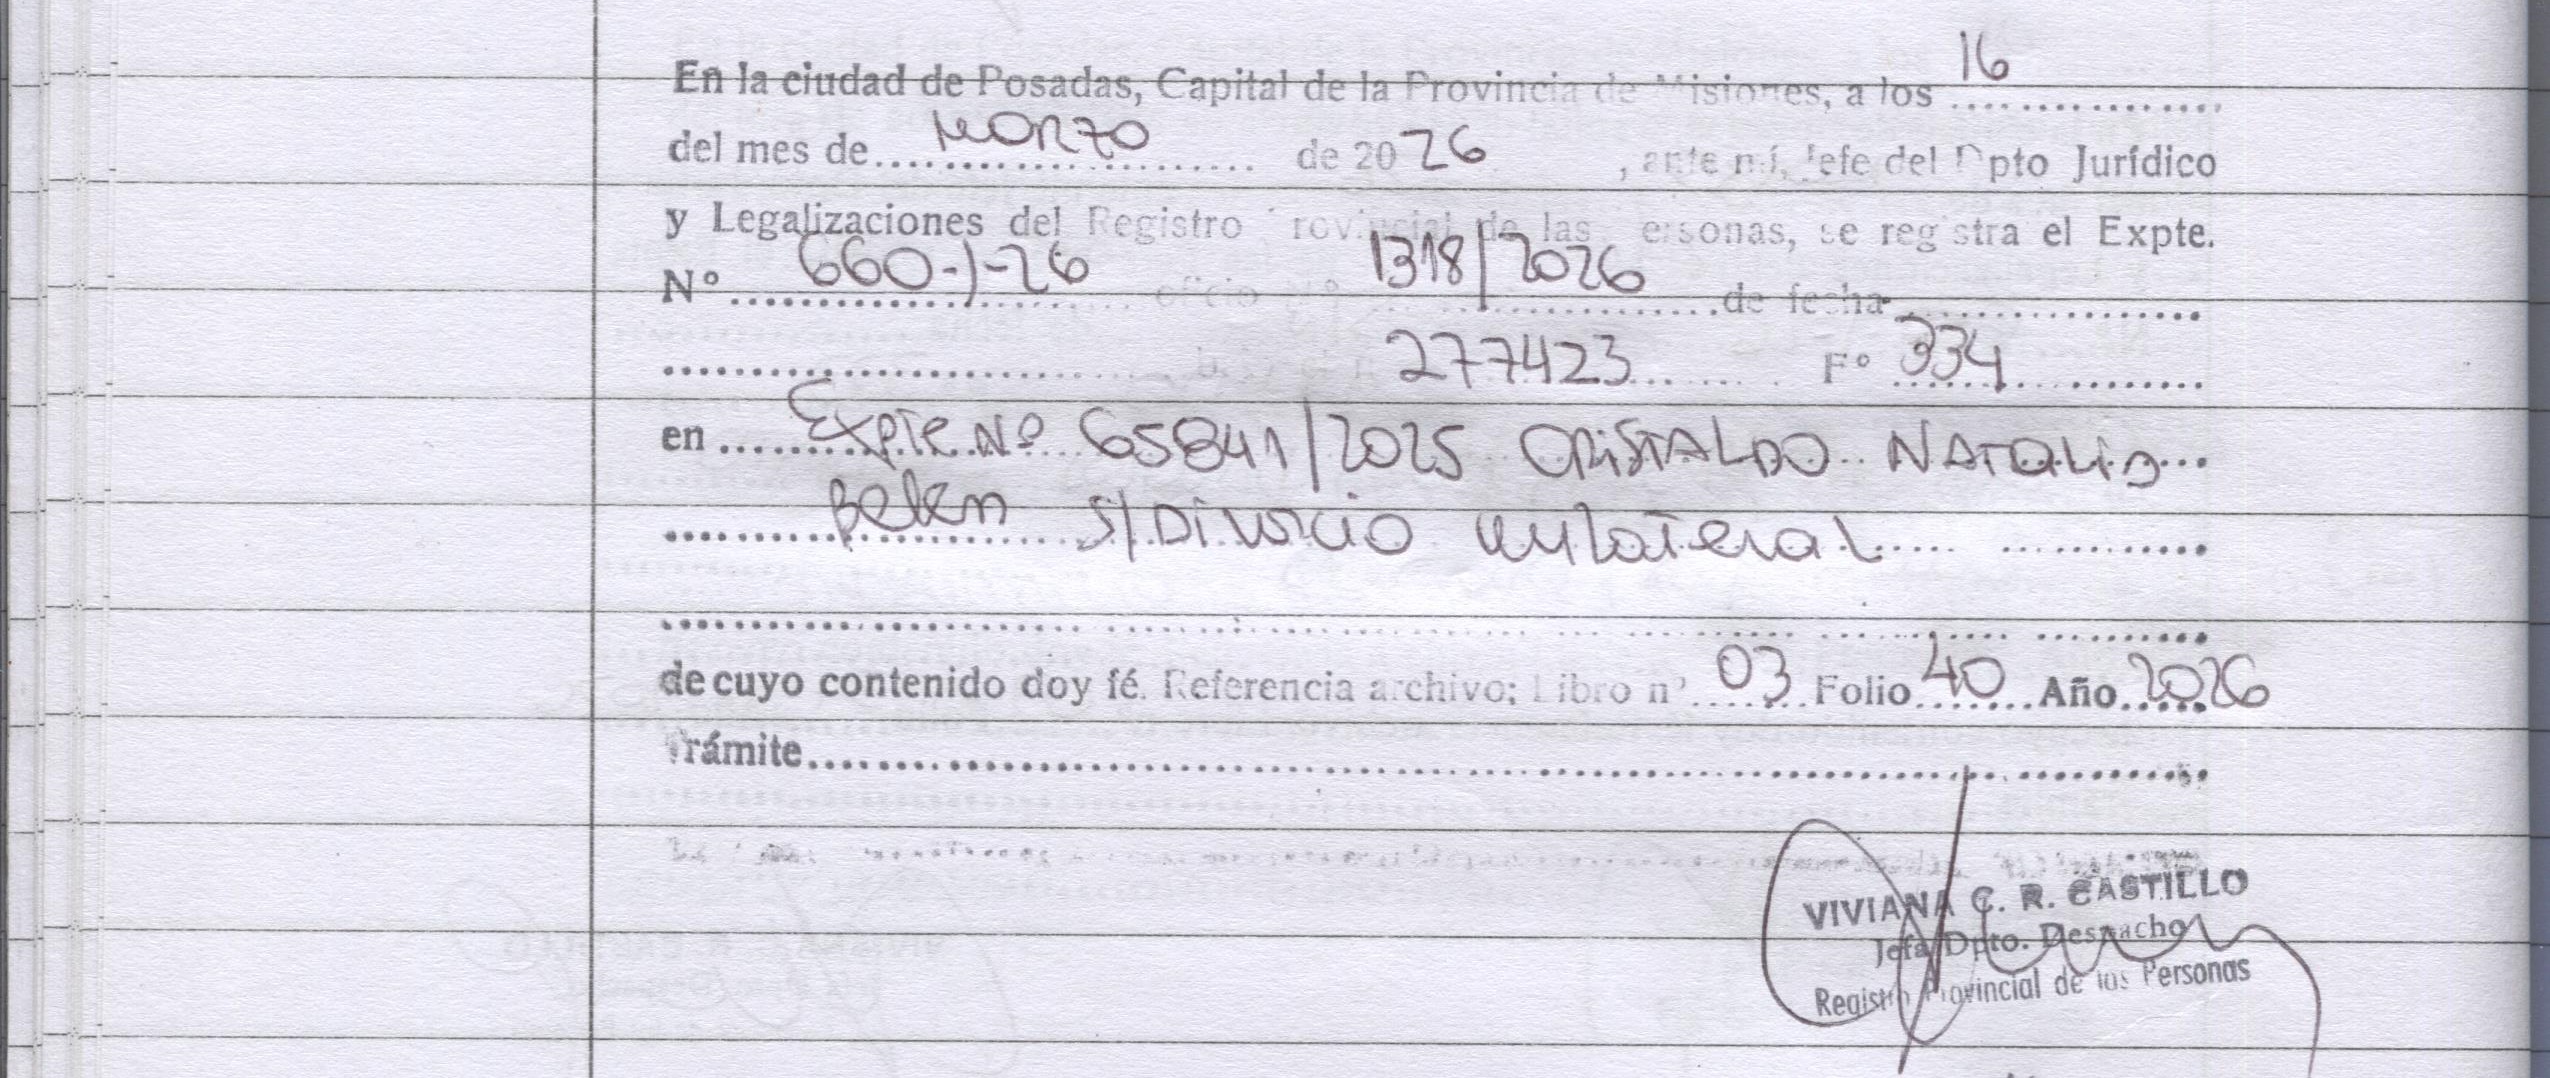 En la ciudad de Posadas, Capital de la Provincia de Misiones, a los 16
del mes de Marzo de 2026, ante mí, Jefe del Dpto Jurídico
y Legalizaciones del Registro Provincial de las Personas, se registra el Expte.
Nº 660-J-26 oficio Nº 1318/2026 de fecha
277423 Fº 334
en Expte. Nº 65841/2025 CRISTALDO NATALIA
Belen S/Divorcio unilateral
de cuyo contenido doy fé. Referencia archivo; Libro nº 03 Folio 40 Año 2026
Trámite
VIVIANA C. R. CASTILLO
Jefa Dpto. Despacho
Registro Provincial de las Personas